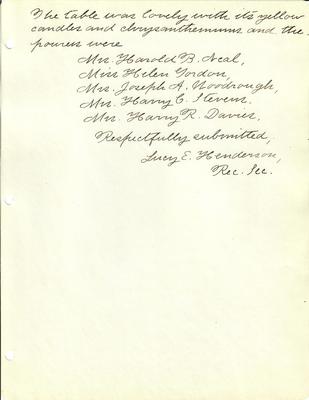 The table was lovely with its yellow
candles and chrysanthemums and the
pourers were
Mrs. Harold B. Neal,
Miss Helen Gordon,
Mrs. Joseph A. Woodrough,
Mrs. Harry C. Stevens,
Mrs. Harry R. Davies,
Respectfully submitted,
Lucy E. Henderson,
Rec. Sec.